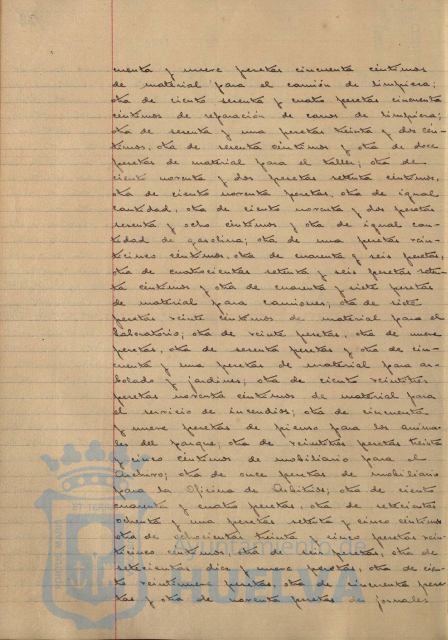 cuenta y nueve pesetas cincuenta céntimos
de material para el camión de limpieza;
otra de ciento sesenta y cuatro pesetas cincuenta
céntimos de reparación de carros de limpieza;
otra de sesenta y una pesetas treinta y dos cén-
timos, otra de sesenta céntimos y otra de doce
pesetas de material para el taller; otra de
ciento noventa y dos pesetas setenta céntimos,
otra de ciento noventa pesetas, otra de igual
cantidad, otra de ciento noventa y dos pesetas
sesenta y ocho céntimos y otra de igual can-
tidad de gasolina; otra de una pesetas vein-
ticinco céntimos, otra de cuarenta y seis pesetas,
otra de cuatrocientas setenta y seis pesetas seten-
ta céntimos y otra de cuarenta y siete pesetas
de material para camiones; otra de siete
pesetas veinte céntimos de material para el
Laboratorio; otra de veinte pesetas, otra de nueve
pesetas, otra de sesenta pesetas y otra de cin-
cuenta y una pesetas de material para ar-
bolado y jardines; otra de ciento veintitrés
pesetas noventa céntimos de material para
el servicio de incendios; otra de cincuenta
y nueve pesetas de pienso para los anima-
les del parque; otra de veintitrés pesetas treinta
y cinco céntimos de mobiliario para el
Archivo; otra de once pesetas de mobiliario
para la Oficina de Arbitrios; otra de ciento
cuarenta y cuatro pesetas, otra de setecientas
ochenta y una pesetas setenta y cinco céntimos
otra de ochocientas treinta y cinco pesetas vein-
ticinco céntimos, otra de seis pesetas, otra de
setecientas diez y nueve pesetas, otra de cien-
to veintinueve pesetas, otra de cincuenta pese-
tas y otra de noventa pesetas de jornales
Ayuntamiento de
HUELVA